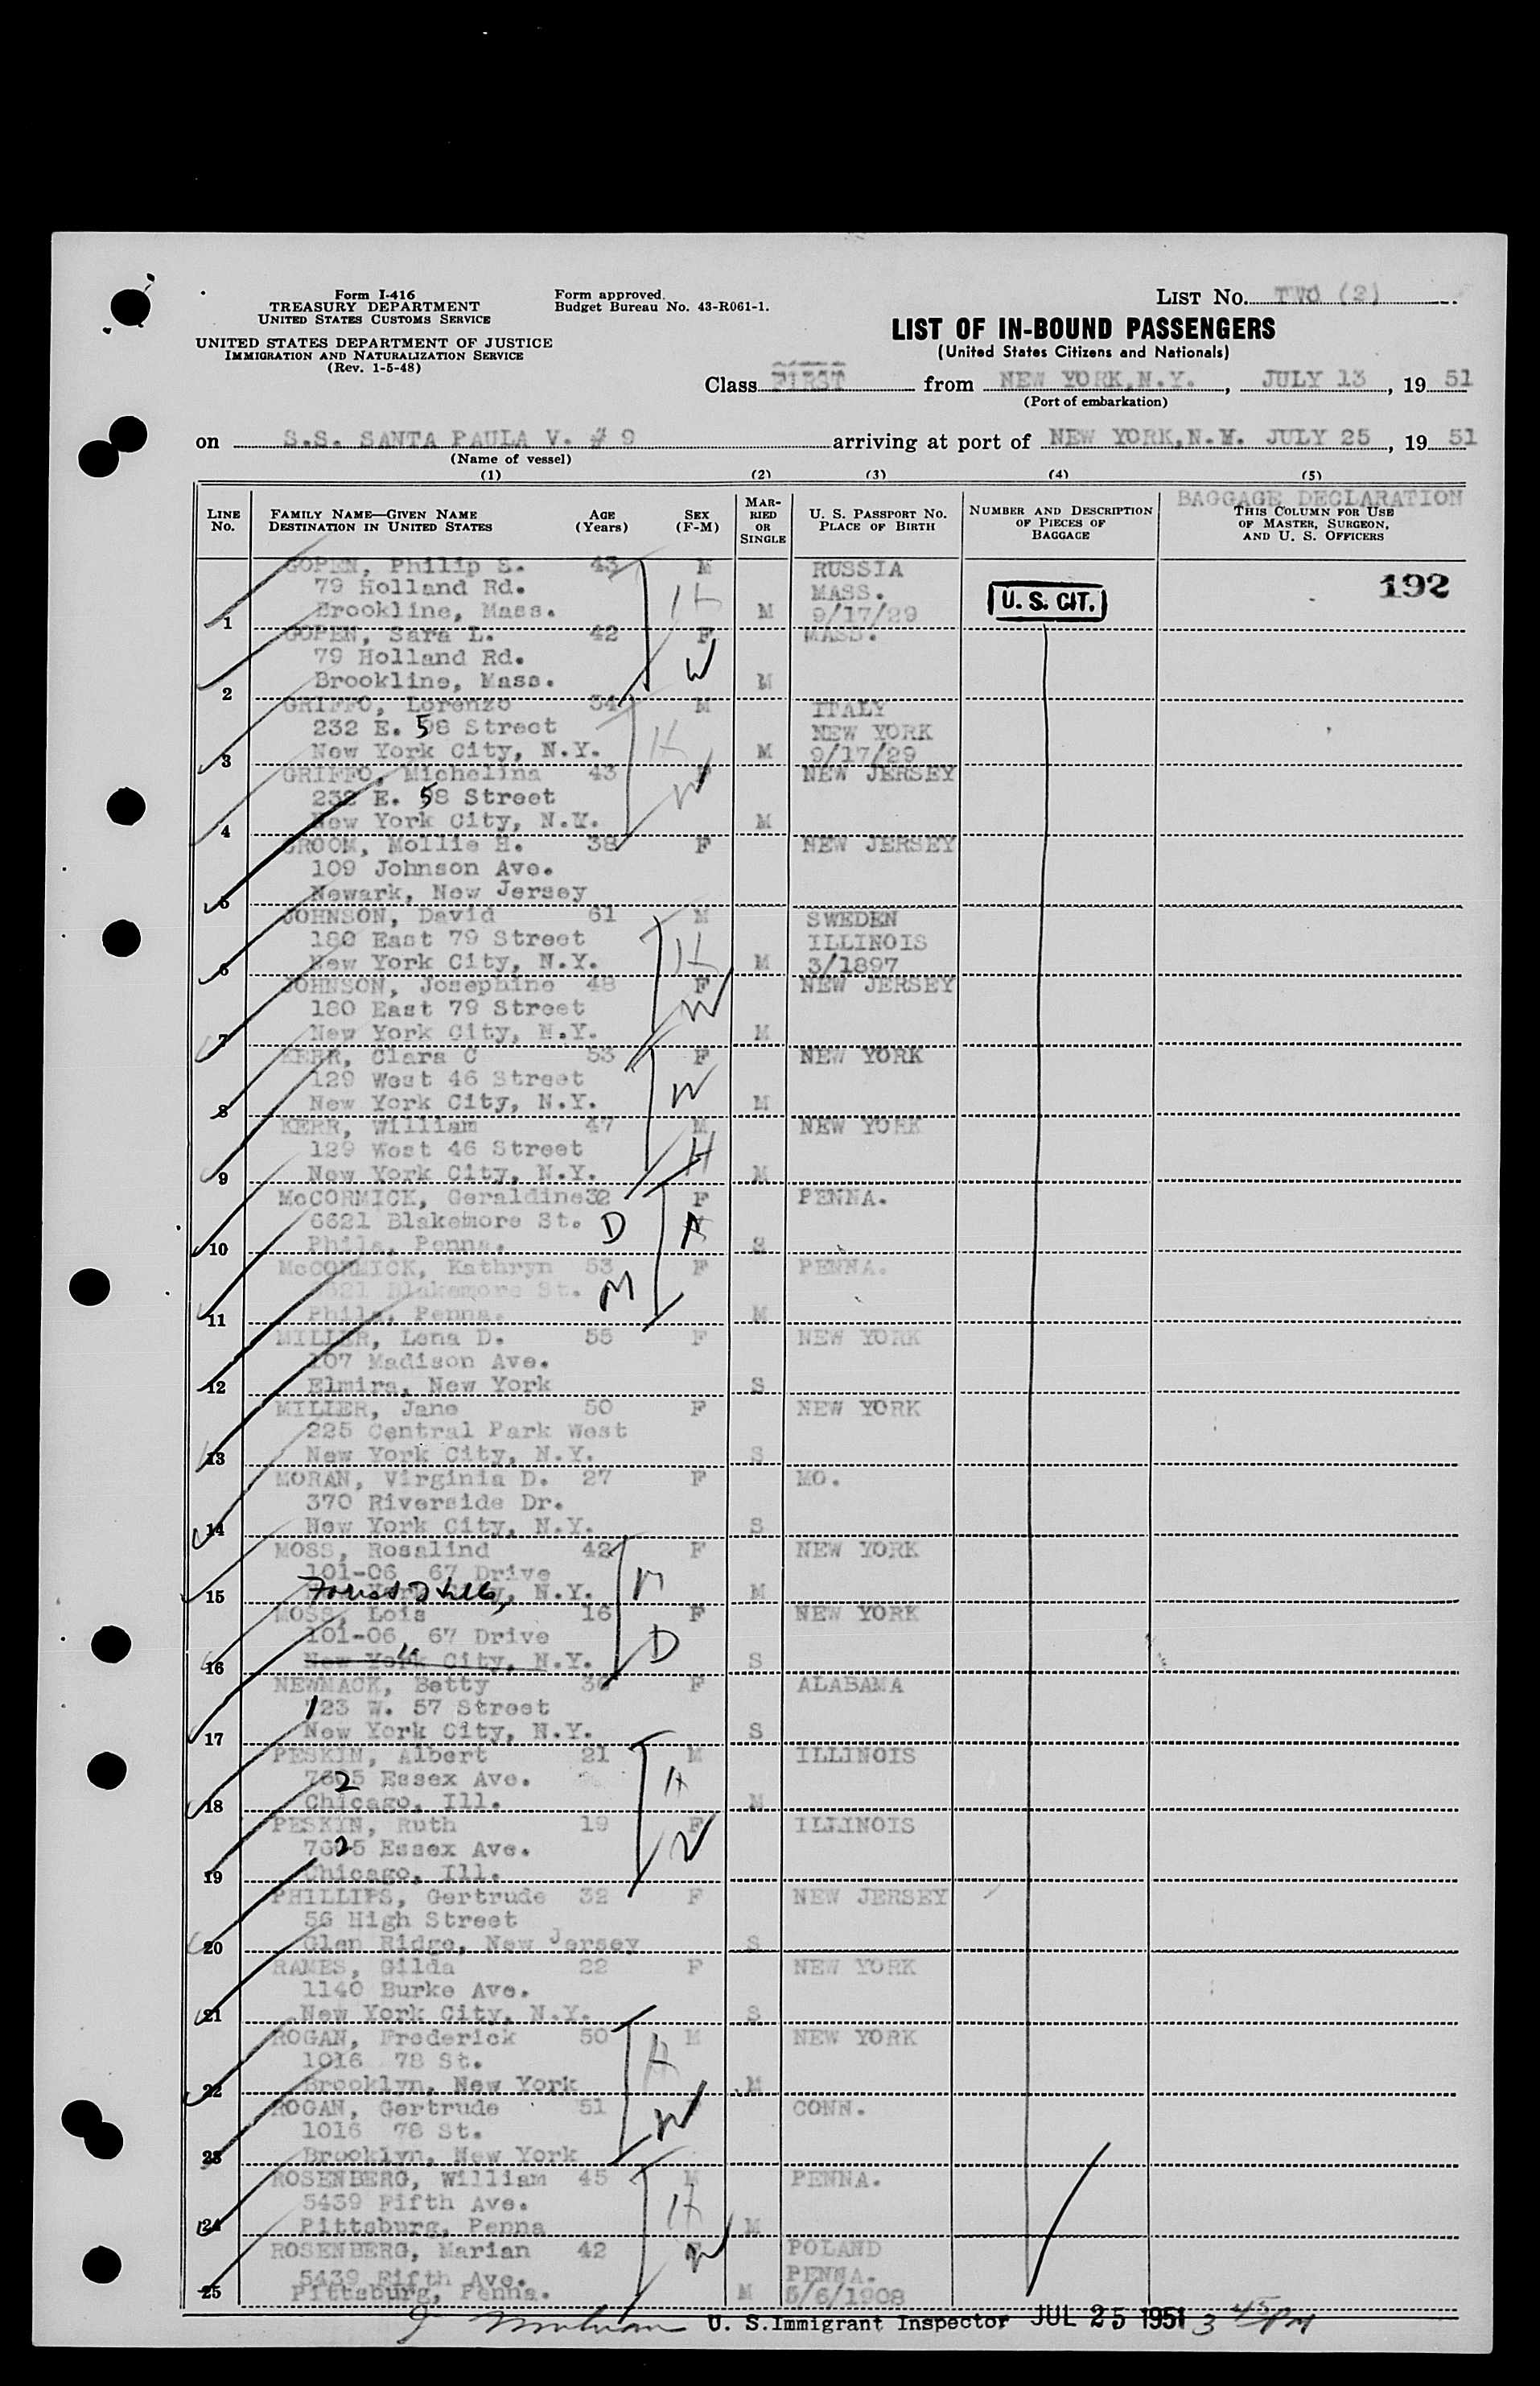 Form I-416
TREASURY DEPARTMENT
UNITED STATES CUSTOMS SERVICE
UNITED STATES DEPARTMENT OF JUSTICE
IMMIGRATION AND NATURALIZATION SERVICE
(Rev. 1-5-48)
Form approved.
Budget Bureau No. 43-R061-1.
LIST No. TWO (2)
LIST OF IN-BOUND PASSENGERS
(United States Citizens and Nationals)
Class FIRST from NEW YORK, N.Y., JULY 13, 19 51
(Port of embarkation)
on S.S. SANTA PAULA V. # 9 arriving at port of NEW YORK, N.Y. JULY 25, 19 51
(Name of vessel)
(1) (2) (3) (4) (5)
BAGGAGE DECLARATION
LINE No. FAMILY NAME—GIVEN NAME DESTINATION IN UNITED STATES AGE (Years) SEX (F-M) MARRIED OR SINGLE U. S. PASSPORT NO. PLACE OF BIRTH NUMBER AND DESCRIPTION OF PIECES OF BAGGAGE THIS COLUMN FOR USE OF MASTER, SURGEON, AND U. S. OFFICERS
GOPEN, Philip S. 43 M RUSSIA
79 Holland Rd. H MASS. U. S. CIT. 192
1 Brookline, Mass. M 9/17/29
GOPEN, Sara L. 42 F MASS.
79 Holland Rd. W
2 Brookline, Mass. M
GRIFFO, Lorenzo 54 M ITALY
232 E. 58 Street H NEW YORK
3 New York City, N.Y. M 9/17/29
GRIFFO, Michelina 43 F NEW JERSEY
232 E. 58 Street W
4 New York City, N.Y. M
GROOM, Mollie H. 38 F NEW JERSEY
109 Johnson Ave.
5 Newark, New Jersey
JOHNSON, David 61 M SWEDEN
180 East 79 Street H ILLINOIS
6 New York City, N.Y. M 3/1897
JOHNSON, Josephine 48 F NEW JERSEY
180 East 79 Street W
7 New York City, N.Y. M
KERR, Clara C 53 F NEW YORK
129 West 46 Street W
8 New York City, N.Y. M
KERR, William 47 M NEW YORK
129 West 46 Street H
9 New York City, N.Y. M
McCORMICK, Geraldine 32 F PENNA.
6621 Blakemore St. D
10 Phila, Penna. S
McCORMICK, Kathryn 53 F PENNA.
6621 Blakemore St. M
11 Phila, Penna. M
MILLER, Lena D. 55 F NEW YORK
107 Madison Ave.
12 Elmira, New York S
MILLER, Jane 50 F NEW YORK
225 Central Park West
13 New York City, N.Y. S
MORAN, Virginia D. 27 F MO.
370 Riverside Dr.
14 New York City, N.Y. S
MOSS, Rosalind 42 F NEW YORK
101-06 67 Drive M
15 Forest Hills, N.Y. M
MOSS, Lois 16 F NEW YORK
101-06 67 Drive D
16 New York City, N.Y. S
NEWMACK, Betty 36 F ALABAMA
123 W. 57 Street
17 New York City, N.Y. S
PESKIN, Albert 21 M ILLINOIS
7625 Essex Ave. H
18 Chicago, Ill. M
PESKIN, Ruth 19 F ILLINOIS
7625 Essex Ave. W
19 Chicago, Ill.
PHILLIPS, Gertrude 32 F NEW JERSEY
56 High Street
20 Glen Ridge, New Jersey S
RAMES, Gilda 22 F NEW YORK
1140 Burke Ave.
21 New York City, N.Y. S
ROGAN, Frederick 50 M NEW YORK
1016 78 St. H
22 Brooklyn, New York M
ROGAN, Gertrude 51 CONN.
1016 78 St. W
23 Brooklyn, New York
ROSENBERG, William 45 M PENNA.
5439 Fifth Ave. H
24 Pittsburg, Penna M
ROSENBERG, Marian 42 F POLAND
5439 Fifth Ave. W PENNA.
25 Pittsburg, Penna. M 5/6/1908
U. S. Immigrant Inspector JUL 25 1951 3 45 PM